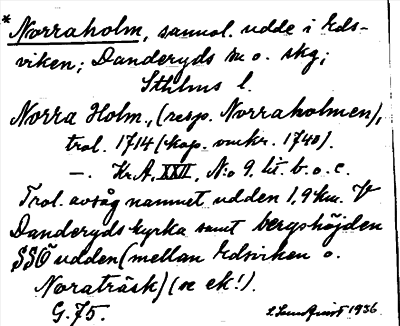 * Norraholm, sannol. udde i Eds-
viken; Danderyds sn o. skg;
Sthlms l.
Norra Holm, (resp. Norraholmen),
trol. 1714 (kop. omkr. 1740).
—. Kr.A. XXII, N:o 9. lit. b. o. c.
Trol. avsåg namnet udden 1,9 km. V
Danderyds kyrka samt bergshöjden
SSO udden (mellan Edsviken o.
Noraträsk) (se ek!).
G. 75.
1936